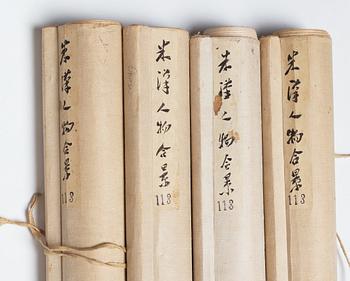 米漢人物合景
113
米漢人物合景
113
米漢人物合景
113
米漢人物合景
113